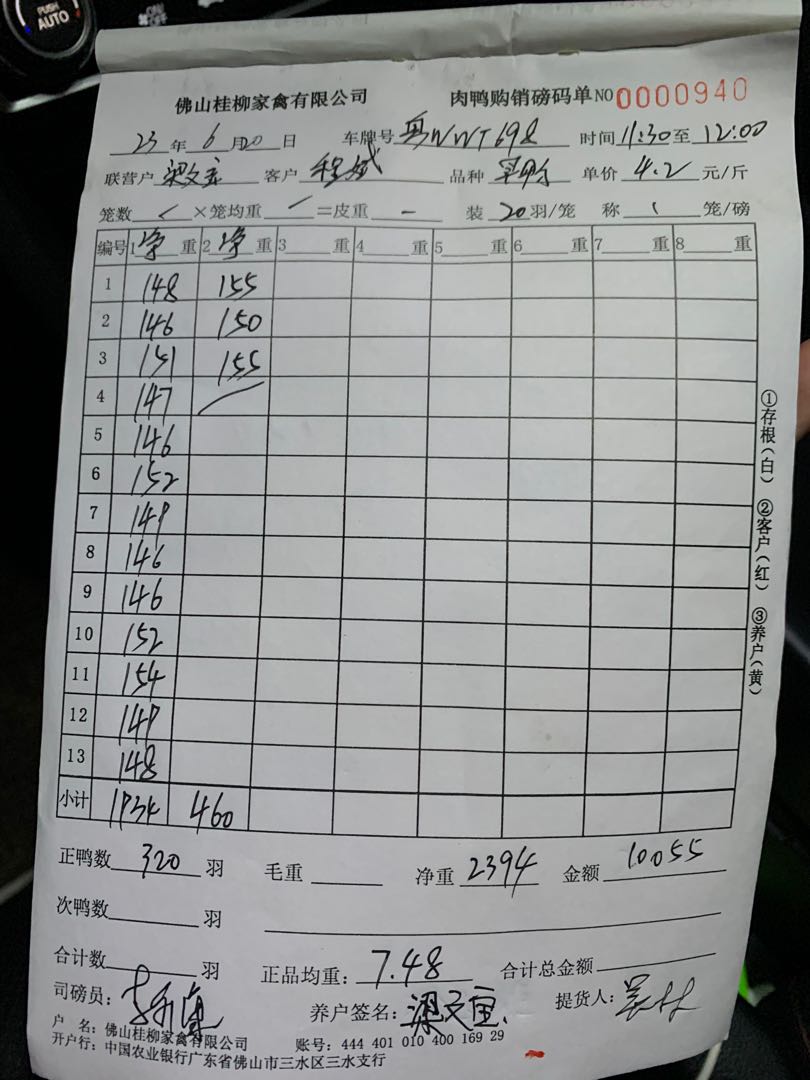 PUSH
AUTO
ON
OFF
佛山桂柳家禽有限公司 肉鸭购销磅码单 NO 0000940
23年6月20日 车牌号 粤WWT698 时间11:30至12:00
联营户 梁文宝 客户 程斌 品种 单价 4.2 元/斤
笼数 × 笼均重 = 皮重 - 装 20 羽/笼 称 1 笼/磅
编号 1净重 2净重 3 重 4 重 5 重 6 重 7 重 8 重
1 148 155
2 146 150
3 151 155
4 147
5 146
6 152
7 149
8 146
9 146
10 152
11 154
12 149
13 148
小计 1934 460
①存根(白) ②客户(红) ③养户(黄)
正鸭数 320 羽 毛重 净重 2394 金额 10055
次鸭数 羽
合计数 羽 正品均重: 7.48 合计总金额
司磅员: 养户签名: 梁文宝 提货人:
户 名: 佛山桂柳家禽有限公司 账号: 444 401 010 400 169 29
开户行: 中国农业银行广东省佛山市三水区三水支行